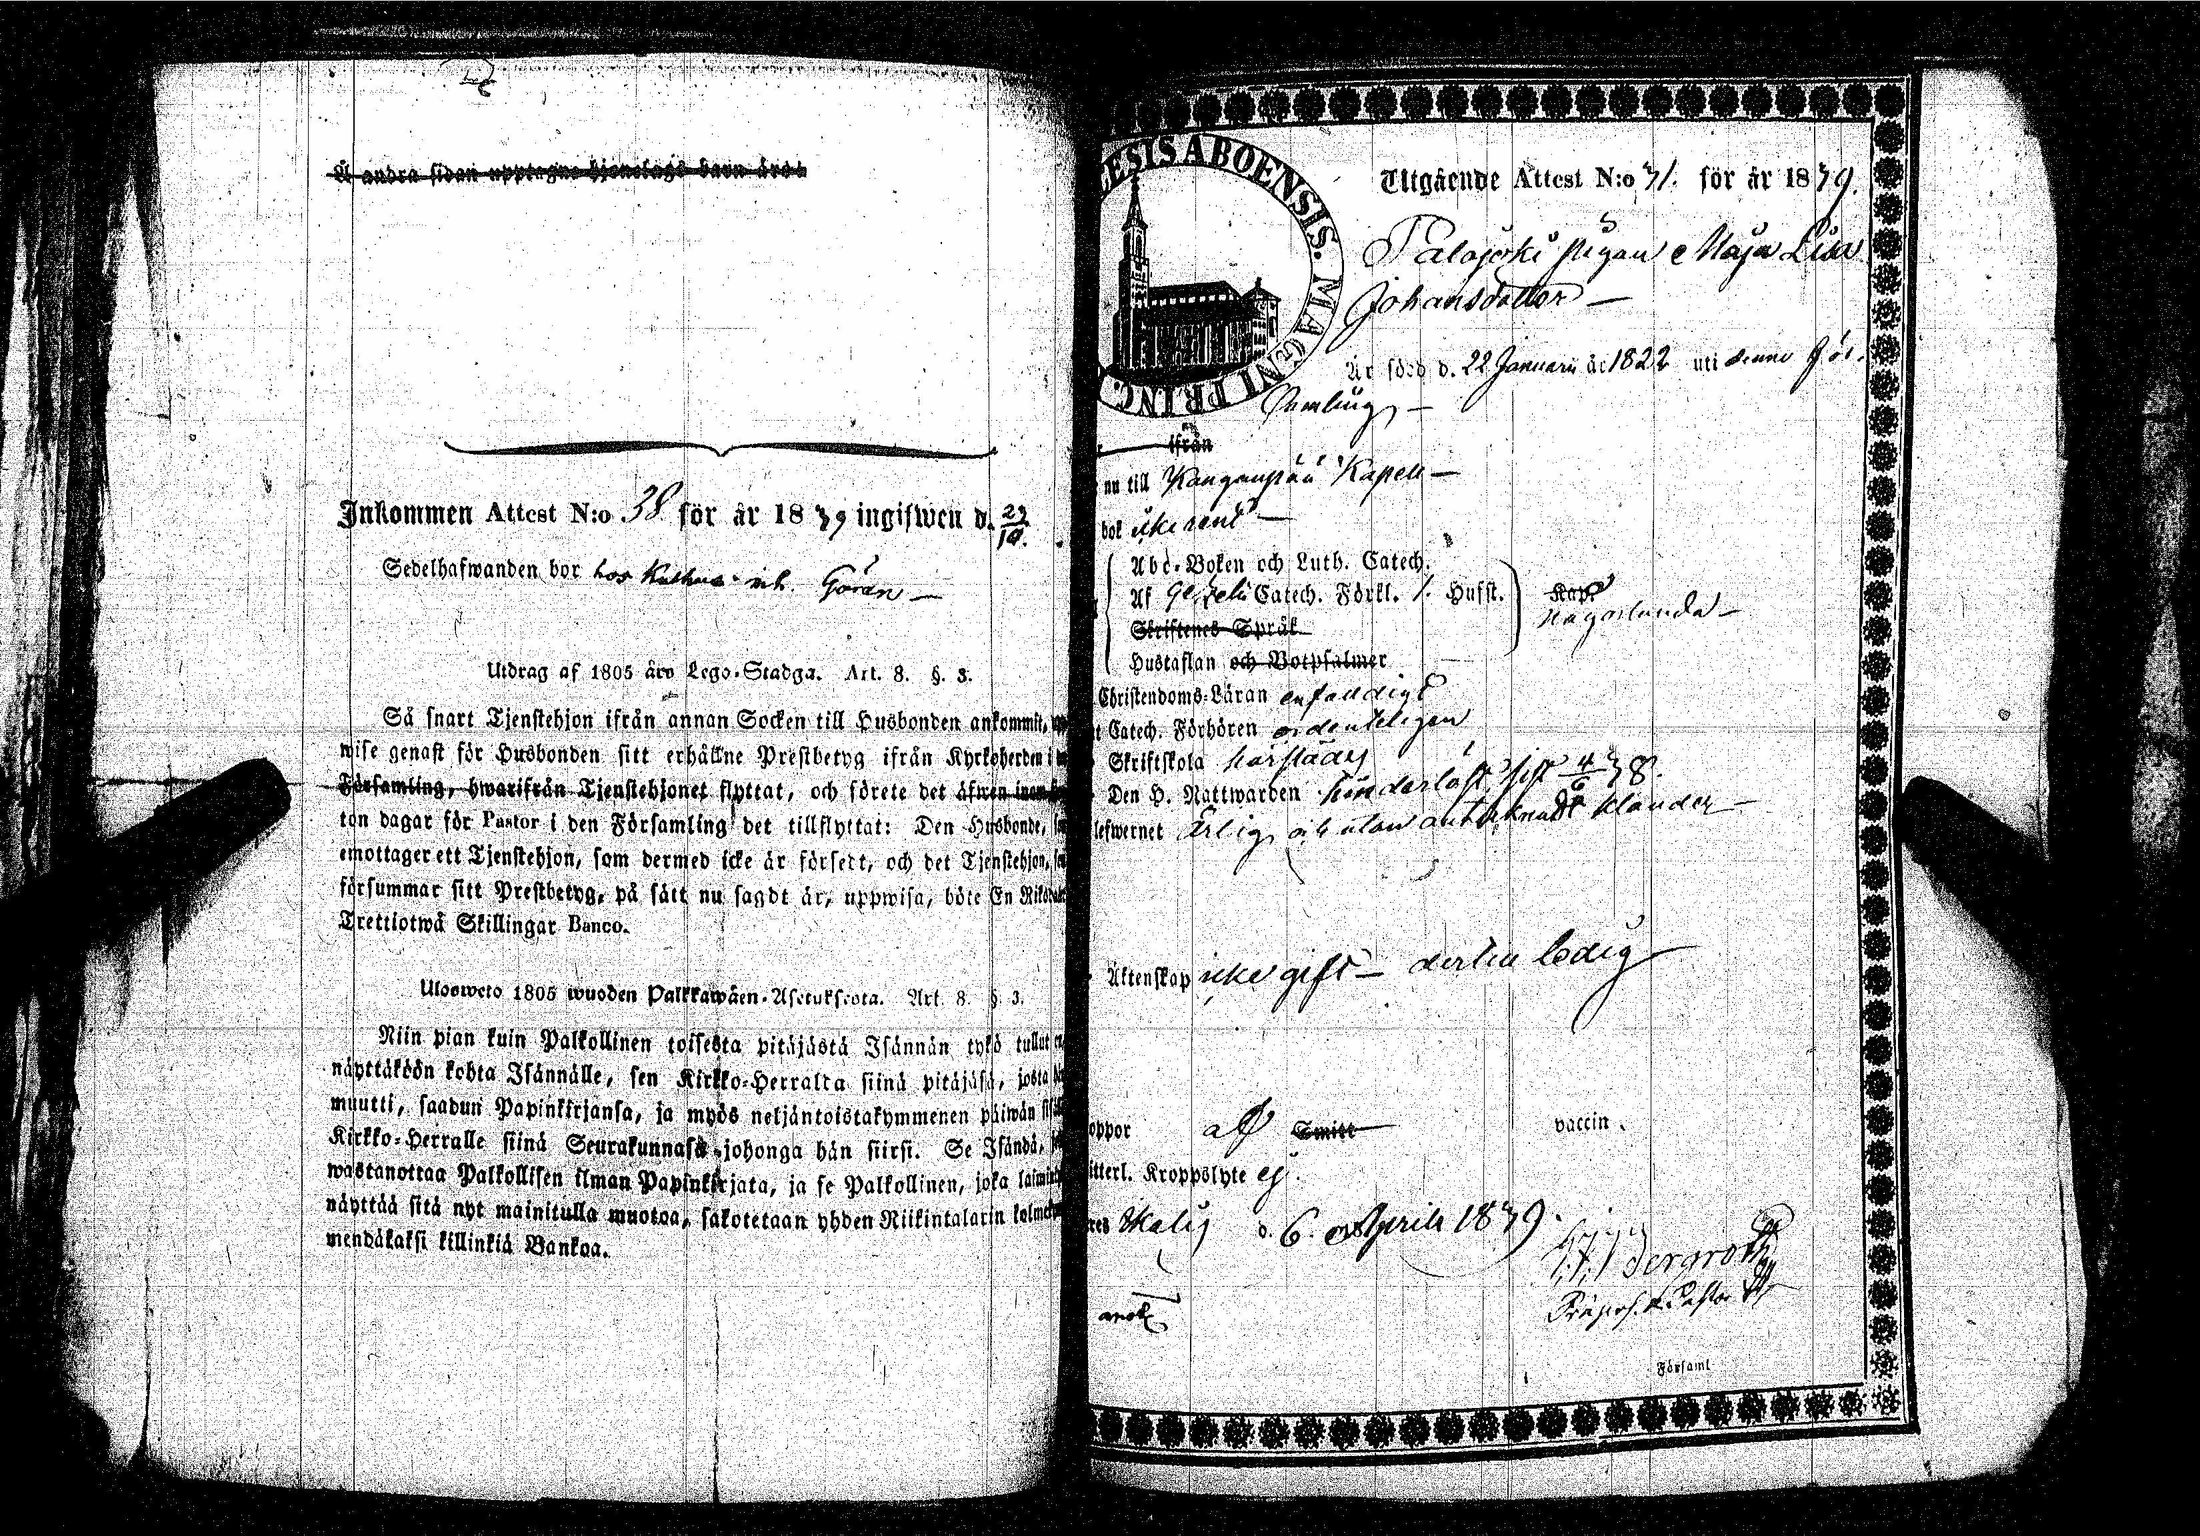 Å andra sidan upptagne hjonelags barn äro:
Inkommen Attest N:o 38 för år 1839 ingifwen d. 29/10.
Sedelhafwanden bor hos Göran —
Utdrag af 1805 års Lego-Stadga. Art. 8. §. 3.
Så snart Tjenstehjon ifrån annan Socken till Husbonden ankommit,
wise genast för Husbonden sitt erhållne Prestbetyg ifrån Kyrkoherden i
Församling, hwarifrån Tjenstehjonet flyttat, och förete det äfwen inom
ton dagar för Pastor i den Församling det tillflyttat: Den Husbonde,
emottager ett Tjenstehjon, som dermed icke är försedt, och det Tjenstehjon,
försummar sitt Prestbetyg, på sätt nu sagdt är, uppwisa, böte En
Trettiotwå Skillingar Banco.
Ulosweto 1805 wuoden Palkkawäen-Asetuksesta. Art. 8. §. 3.
Niin pian kuin Palkollinen toisesta pitäjästä Isännän tykö tullut
näyttäköön kohta Isännälle, sen Kirkko-Herralta siinä pitäjäsä, josta
muutti, saadun Papinkirjansa, ja myös neljäntoistakymmenen päiwän
Kirkko-Herralle siinä Seurakunnasa johonga hän siirsi. Se Isändä,
wastanottaa Palkollisen ilman Papinkirjata, ja se Palkollinen, joka
näyttää sitä nyt mainitulla muotoa, sakotetaan yhden Riikintalarin
mendäkaksi killinkiä Bankoa.
ESIS ABOENSIS. MAGNI PRINC.
Utgående Attest N:o 31. för år 1839.
Palojoki pigan Maja Lisa
Johansdotter —
Är född d. 22 Januarii år 1822 uti denne För-
samling —
ifrån
nu till Kangenpää Kapell —
bok icke känt —
Abc-Boken och Luth. Catech.
Af Gezelii Catech. Förkl. 1. Hufst.
Kap.
någorlunda —
Skriftenes Språk
Hustaflan och Botpsalmer
Christendoms-Läran enfaldigt
Catech. Förhören ordenteligen
Skriftskola härstädes
Den H. Nattwarden hinderlöst, sist 4/6 38.
lefwernet Ärlig och utan antecknadt klander —
Äktenskap icke gift — derten ledig
oppor af Smitt vaccin.
itterl. Kroppslyte ej.
d. 6 Aprilis 1839.
Bergroth
Præpos. & Pastor
Församl